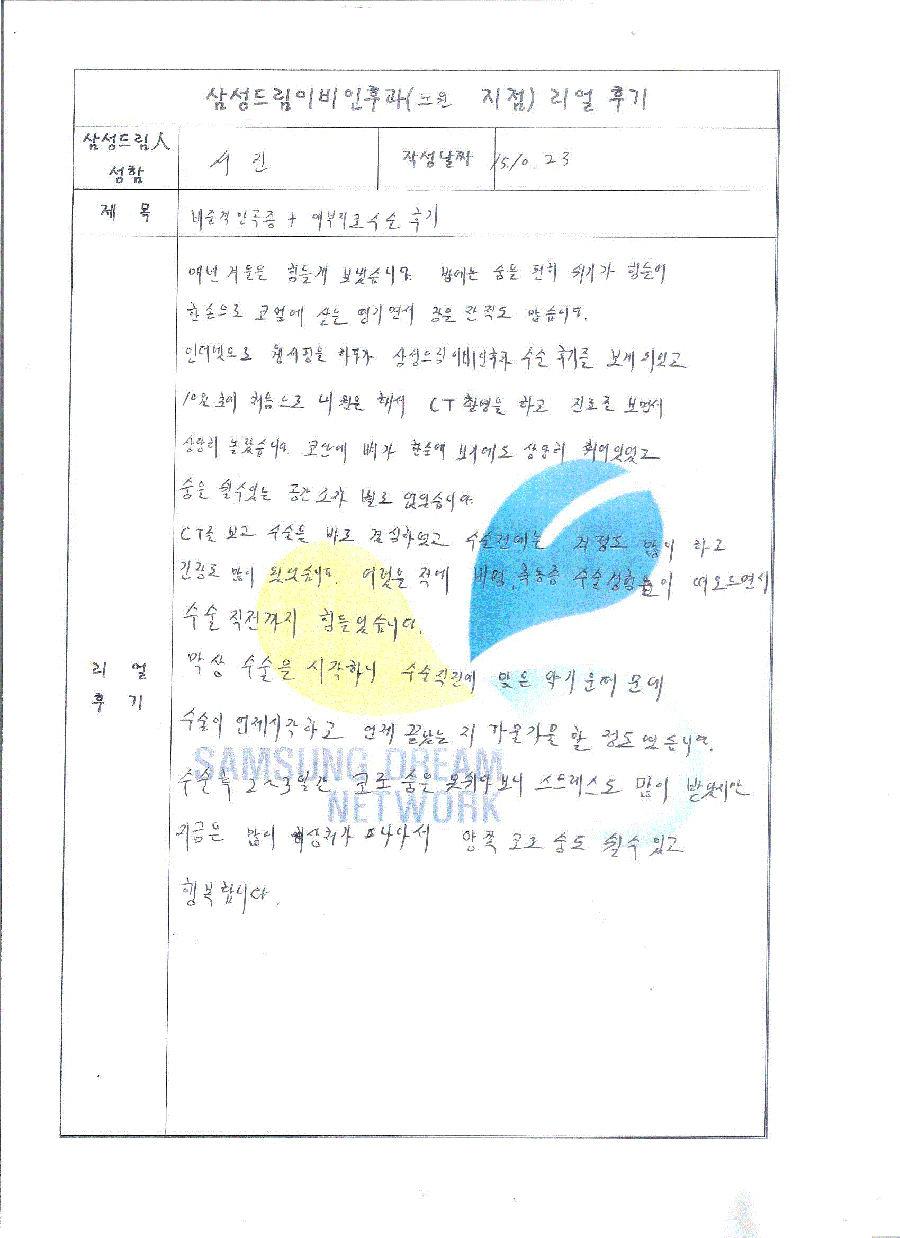 삼성드림이비인후과(노원 지점) 리얼 후기
삼성드림人
성함
서진
작성날짜
15.10.23
제 목
비중격만곡증 + 수술 후기
매년 겨울을 힘들게 보냈습니다. 밤에는 숨을 편히 쉬기가 힘들어
한손으로 코옆에 살을 땡기면서 잠은 잔적도 많습니다.
인터넷으로 웹서핑을 하다가 삼성드림이비인후과 수술 후기를 보게 되었고
10월 초에 처음으로 내원을 해서 CT촬영을 하고 진료를 보면서
상당히 놀랐습니다. 코안에 뼈가 한눈에 보기에도 상당히 휘어있었고
숨을 쉴수있는 공간 별로 없었습니다.
CT를 보고 수술을 바로 결심하였고 수술전에는 걱정도 많이 하고
긴장도 많이 되었습니다. 어렸을 적에 비염, 축농증 수술 이 떠오르면서
수술 직전까지 힘들었습니다.
막상 수술을 시작하니 수술직전에 맞은 약기운때문에
수술이 언제시작하고 언제 끝났는 지 가물가물 할 정도 였습니다.
수술후 2~3일간 코로 숨을 못쉬다 보니 스트레스도 많이 받았지만
지금은 많이 양쪽 코로 숨도 쉴수 있고
행복합니다.
리 얼
후 기
SAMSUNG DREAM
NETWORK